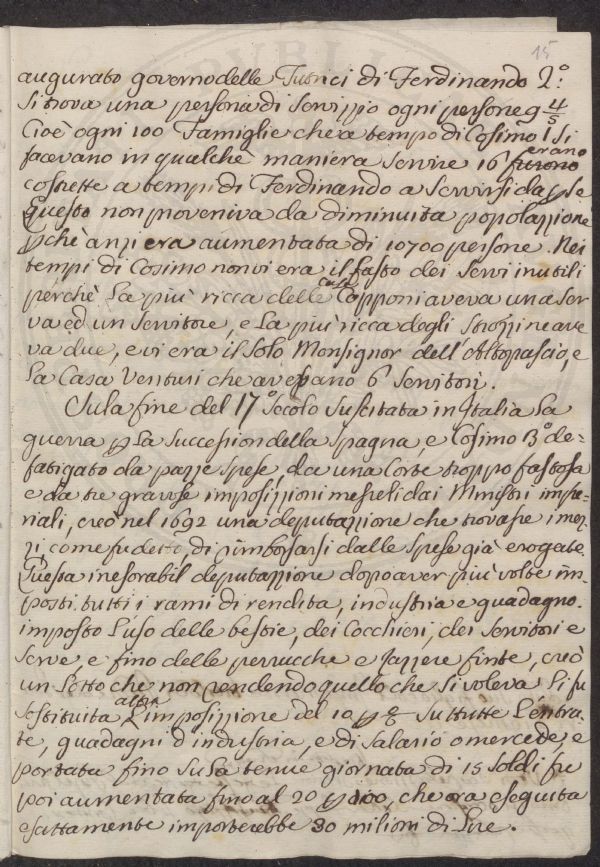 15
augurato governo delle Tutrici di Ferdinando 2.º
si trova una persona di Servizzio ogni persone 9 4/5
Cioè ogni 100 Famiglie che a tempo di Cosimo I si
facevano in qualche maniera servire 16 erano
costrette a tempi di Ferdinando a servirsi da p se
Questo non proveniva da diminuita popolazzione
pchè anzi era aumentata di 10700 persone. Nei
tempi di Cosimo non vi era il fasto dei servi inutili
perchè La più ricca delle case Capponi aveva una ser
va ed un Servitore, e La più ricca degli Strozzi ne ave
va due, e vi era il solo Monsignor dell'Altopascio, e
La Casa Venturi che avessano 6 Servitori.
Sula fine del 17º Secolo suscitata in Italia La
guerra p La Succession della Spagna, e Cosimo 3º de=
fatigato da pazze spese, da una Corte troppo fastosa
e da tre gravose imposizzioni messeli dai Ministri impe=
riali, creò nel 1692 una deputazzione che trovasse i mez
zi, come fu detto, di rimborsarsi dalle spese già erogate
Questa inesorabil deputazzione dopo aver più volte im
posti tutti i rami di rendita, industria e guadagno.
imposto L'uso delle bestie, dei Cocchieri, dei Servitori e
Serve, e fino delle perrucche e zazzere finte, creò
un Lotto che non rendendo quello che si voleva Li fu
sostituita altra L'imposizzione del 10 p % su tutte L'entra=
te, guadagni d industria, e di salario o mercede, e
portata fino su La tenue giornata di 15 soldi fu
poi aumentata fino al 20 p 100, che ora eseguita
esattamente importerebbe 30 milioni di Lire.